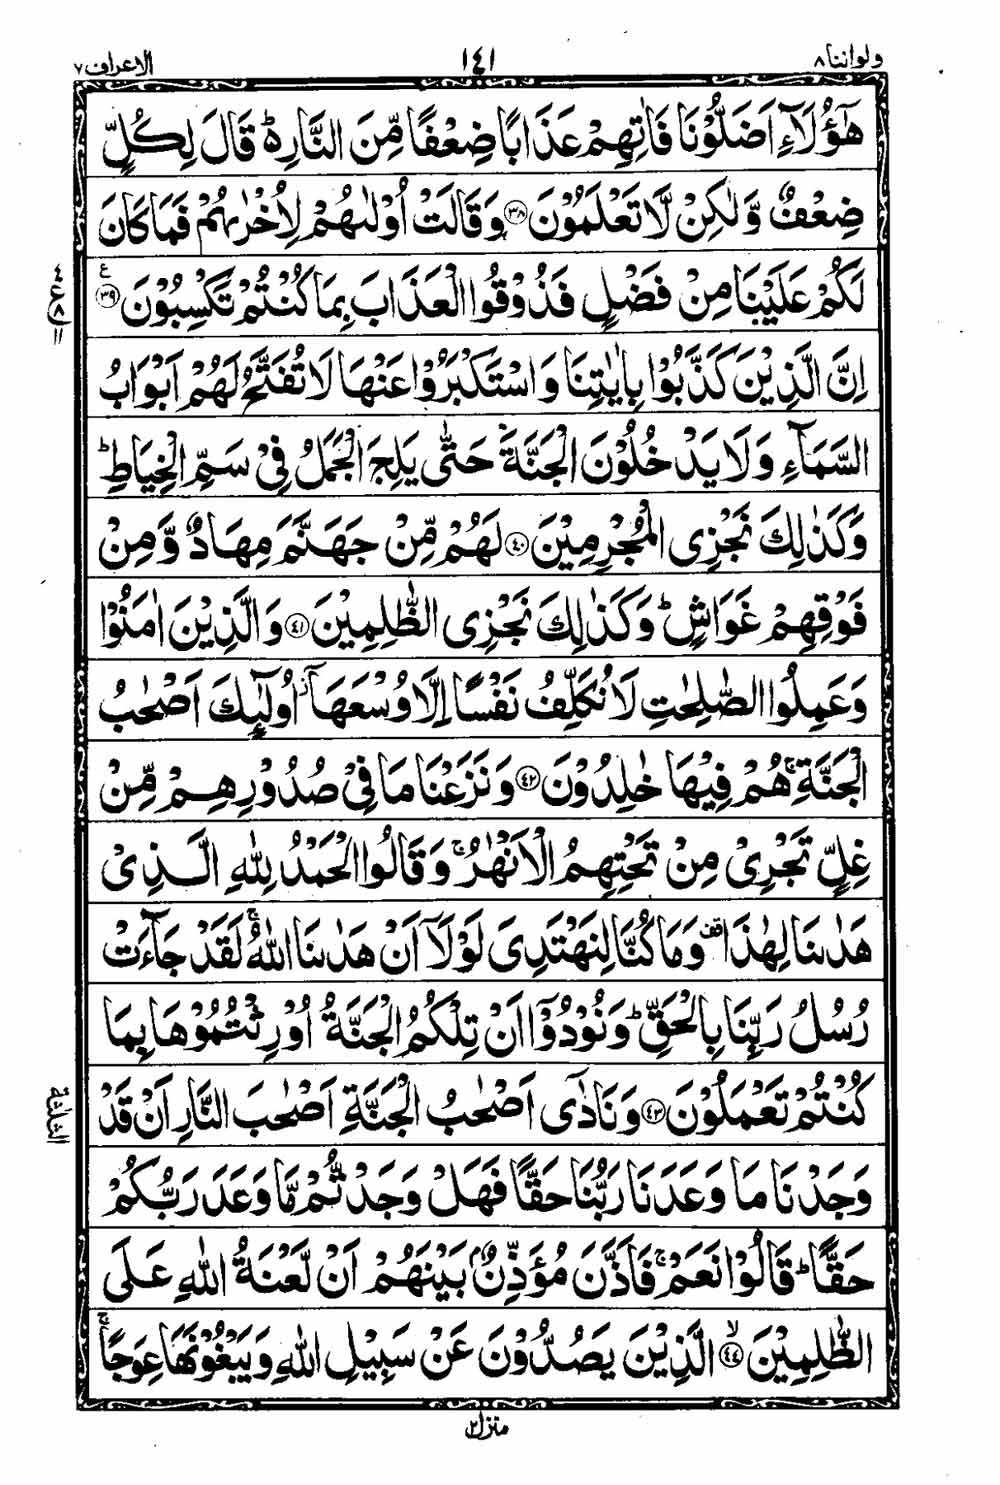 ولواننا ٨ ١٤١ الاعراف ٧
هٰٓؤُلَآءِ اَضَلُّوْنَا فَاٰتِهِمْ عَذَابًا ضِعْفًا مِّنَ النَّارِ ؕ۬ قَالَ لِكُلٍّ
ضِعْفٌ وَّلٰكِنْ لَّا تَعْلَمُوْنَ ﴿۳۸﴾ وَقَالَتْ اُوْلٰىهُمْ لِاُخْرٰىهُمْ فَمَا كَانَ
لَكُمْ عَلَيْنَا مِنْ فَضْلٍ فَذُوْقُوا الْعَذَابَ بِمَا كُنْتُمْ تَكْسِبُوْنَ ﴿۳۹﴾ ع
٤ ع ٨ ١١
اِنَّ الَّذِيْنَ كَذَّبُوْا بِاٰيٰتِنَا وَاسْتَكْبَرُوْا عَنْهَا لَا تُفَتَّحُ لَهُمْ اَبْوَابُ
السَّمَآءِ وَلَا يَدْخُلُوْنَ الْجَنَّةَ حَتّٰى يَلِجَ الْجَمَلُ فِيْ سَمِّ الْخِيَاطِ ؕ
وَكَذٰلِكَ نَجْزِى الْمُجْرِمِيْنَ ﴿۴۰﴾ لَهُمْ مِّنْ جَهَنَّمَ مِهَادٌ وَّمِنْ
فَوْقِهِمْ غَوَاشٍ ؕ وَكَذٰلِكَ نَجْزِى الظّٰلِمِيْنَ ﴿۴۱﴾ وَالَّذِيْنَ اٰمَنُوْا
وَعَمِلُوا الصّٰلِحٰتِ لَا نُكَلِّفُ نَفْسًا اِلَّا وُسْعَهَاۤ ؗ اُولٰٓئِكَ اَصْحٰبُ
الْجَنَّةِ ۚ هُمْ فِيْهَا خٰلِدُوْنَ ﴿۴۲﴾ وَنَزَعْنَا مَا فِيْ صُدُوْرِهِمْ مِّنْ
غِلٍّ تَجْرِيْ مِنْ تَحْتِهِمُ الْاَنْهٰرُ ۚ وَقَالُوا الْحَمْدُ لِلّٰهِ الَّذِيْ
هَدٰىنَا لِهٰذَا ۟قف وَمَا كُنَّا لِنَهْتَدِىَ لَوْلَاۤ اَنْ هَدٰىنَا اللّٰهُ ۚ لَقَدْ جَآءَتْ
رُسُلُ رَبِّنَا بِالْحَقِّ ؕ وَنُوْدُوْۤا اَنْ تِلْكُمُ الْجَنَّةُ اُوْرِثْتُمُوْهَا بِمَا
كُنْتُمْ تَعْمَلُوْنَ ﴿۴۳﴾ وَنَادٰۤى اَصْحٰبُ الْجَنَّةِ اَصْحٰبَ النَّارِ اَنْ قَدْ
الثلثة
وَجَدْنَا مَا وَعَدَنَا رَبُّنَا حَقًّا فَهَلْ وَجَدْتُّمْ مَّا وَعَدَ رَبُّكُمْ
حَقًّا ؕ قَالُوْا نَعَمْ ۚ فَاَذَّنَ مُؤَذِّنٌۢ بَيْنَهُمْ اَنْ لَّعْنَةُ اللّٰهِ عَلَى
الظّٰلِمِيْنَ ﴿۴۴﴾ۙ الَّذِيْنَ يَصُدُّوْنَ عَنْ سَبِيْلِ اللّٰهِ وَيَبْغُوْنَهَا عِوَجًا ۚ
منزل ٢